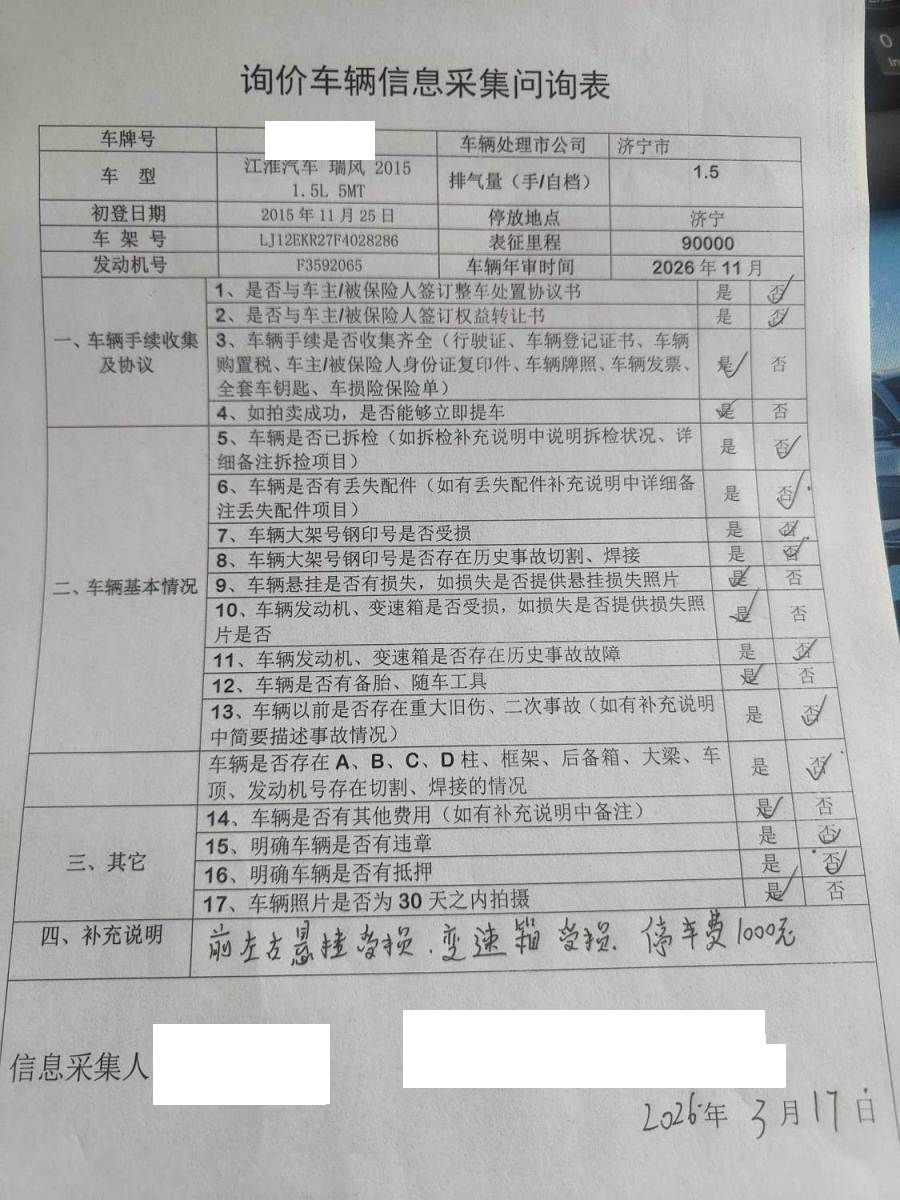 询价车辆信息采集问询表
车牌号 车辆处理市公司 济宁市
车 型 江淮汽车 瑞风 2015 1.5L 5MT 排气量（手/自档） 1.5
初登日期 2015 年 11 月 25 日 停放地点 济宁
车 架 号 LJ12EKR27F4028286 表征里程 90000
发动机号 F3592065 车辆年审时间 2026 年 11 月
一、车辆手续收集及协议
1、是否与车主/被保险人签订整车处置协议书 是 否✓
2、是否与车主/被保险人签订权益转让书 是 否✓
3、车辆手续是否收集齐全（行驶证、车辆登记证书、车辆
购置税、车主/被保险人身份证复印件、车辆牌照、车辆发票、
全套车钥匙、车损险保险单） 是✓ 否
4、如拍卖成功，是否能够立即提车 是✓ 否
二、车辆基本情况
5、车辆是否已拆检（如拆检补充说明中说明拆检状况、详
细备注拆捡项目） 是 否✓
6、车辆是否有丢失配件（如有丢失配件补充说明中详细备
注丢失配件项目） 是 否✓
7、车辆大架号钢印号是否受损 是 否✓
8、车辆大架号钢印号是否存在历史事故切割、焊接 是 否✓
9、车辆悬挂是否有损失，如损失是否提供悬挂损失照片 是✓ 否
10、车辆发动机、变速箱是否受损，如损失是否提供损失照
片是否 是✓ 否
11、车辆发动机、变速箱是否存在历史事故故障 是 否✓
12、车辆是否有备胎、随车工具 是✓ 否
13、车辆以前是否存在重大旧伤、二次事故（如有补充说明
中简要描述事故情况） 是 否✓
车辆是否存在 A、B、C、D 柱、框架、后备箱、大梁、车
顶、发动机号存在切割、焊接的情况 是 否✓
三、其它
14、车辆是否有其他费用（如有补充说明中备注） 是✓ 否
15、明确车辆是否有违章 是 否✓
16、明确车辆是否有抵押 是 否✓
17、车辆照片是否为 30 天之内拍摄 是✓ 否
四、补充说明 前左右悬挂受损.变速箱受损.停车费1000元
信息采集人
2026年 3月17日